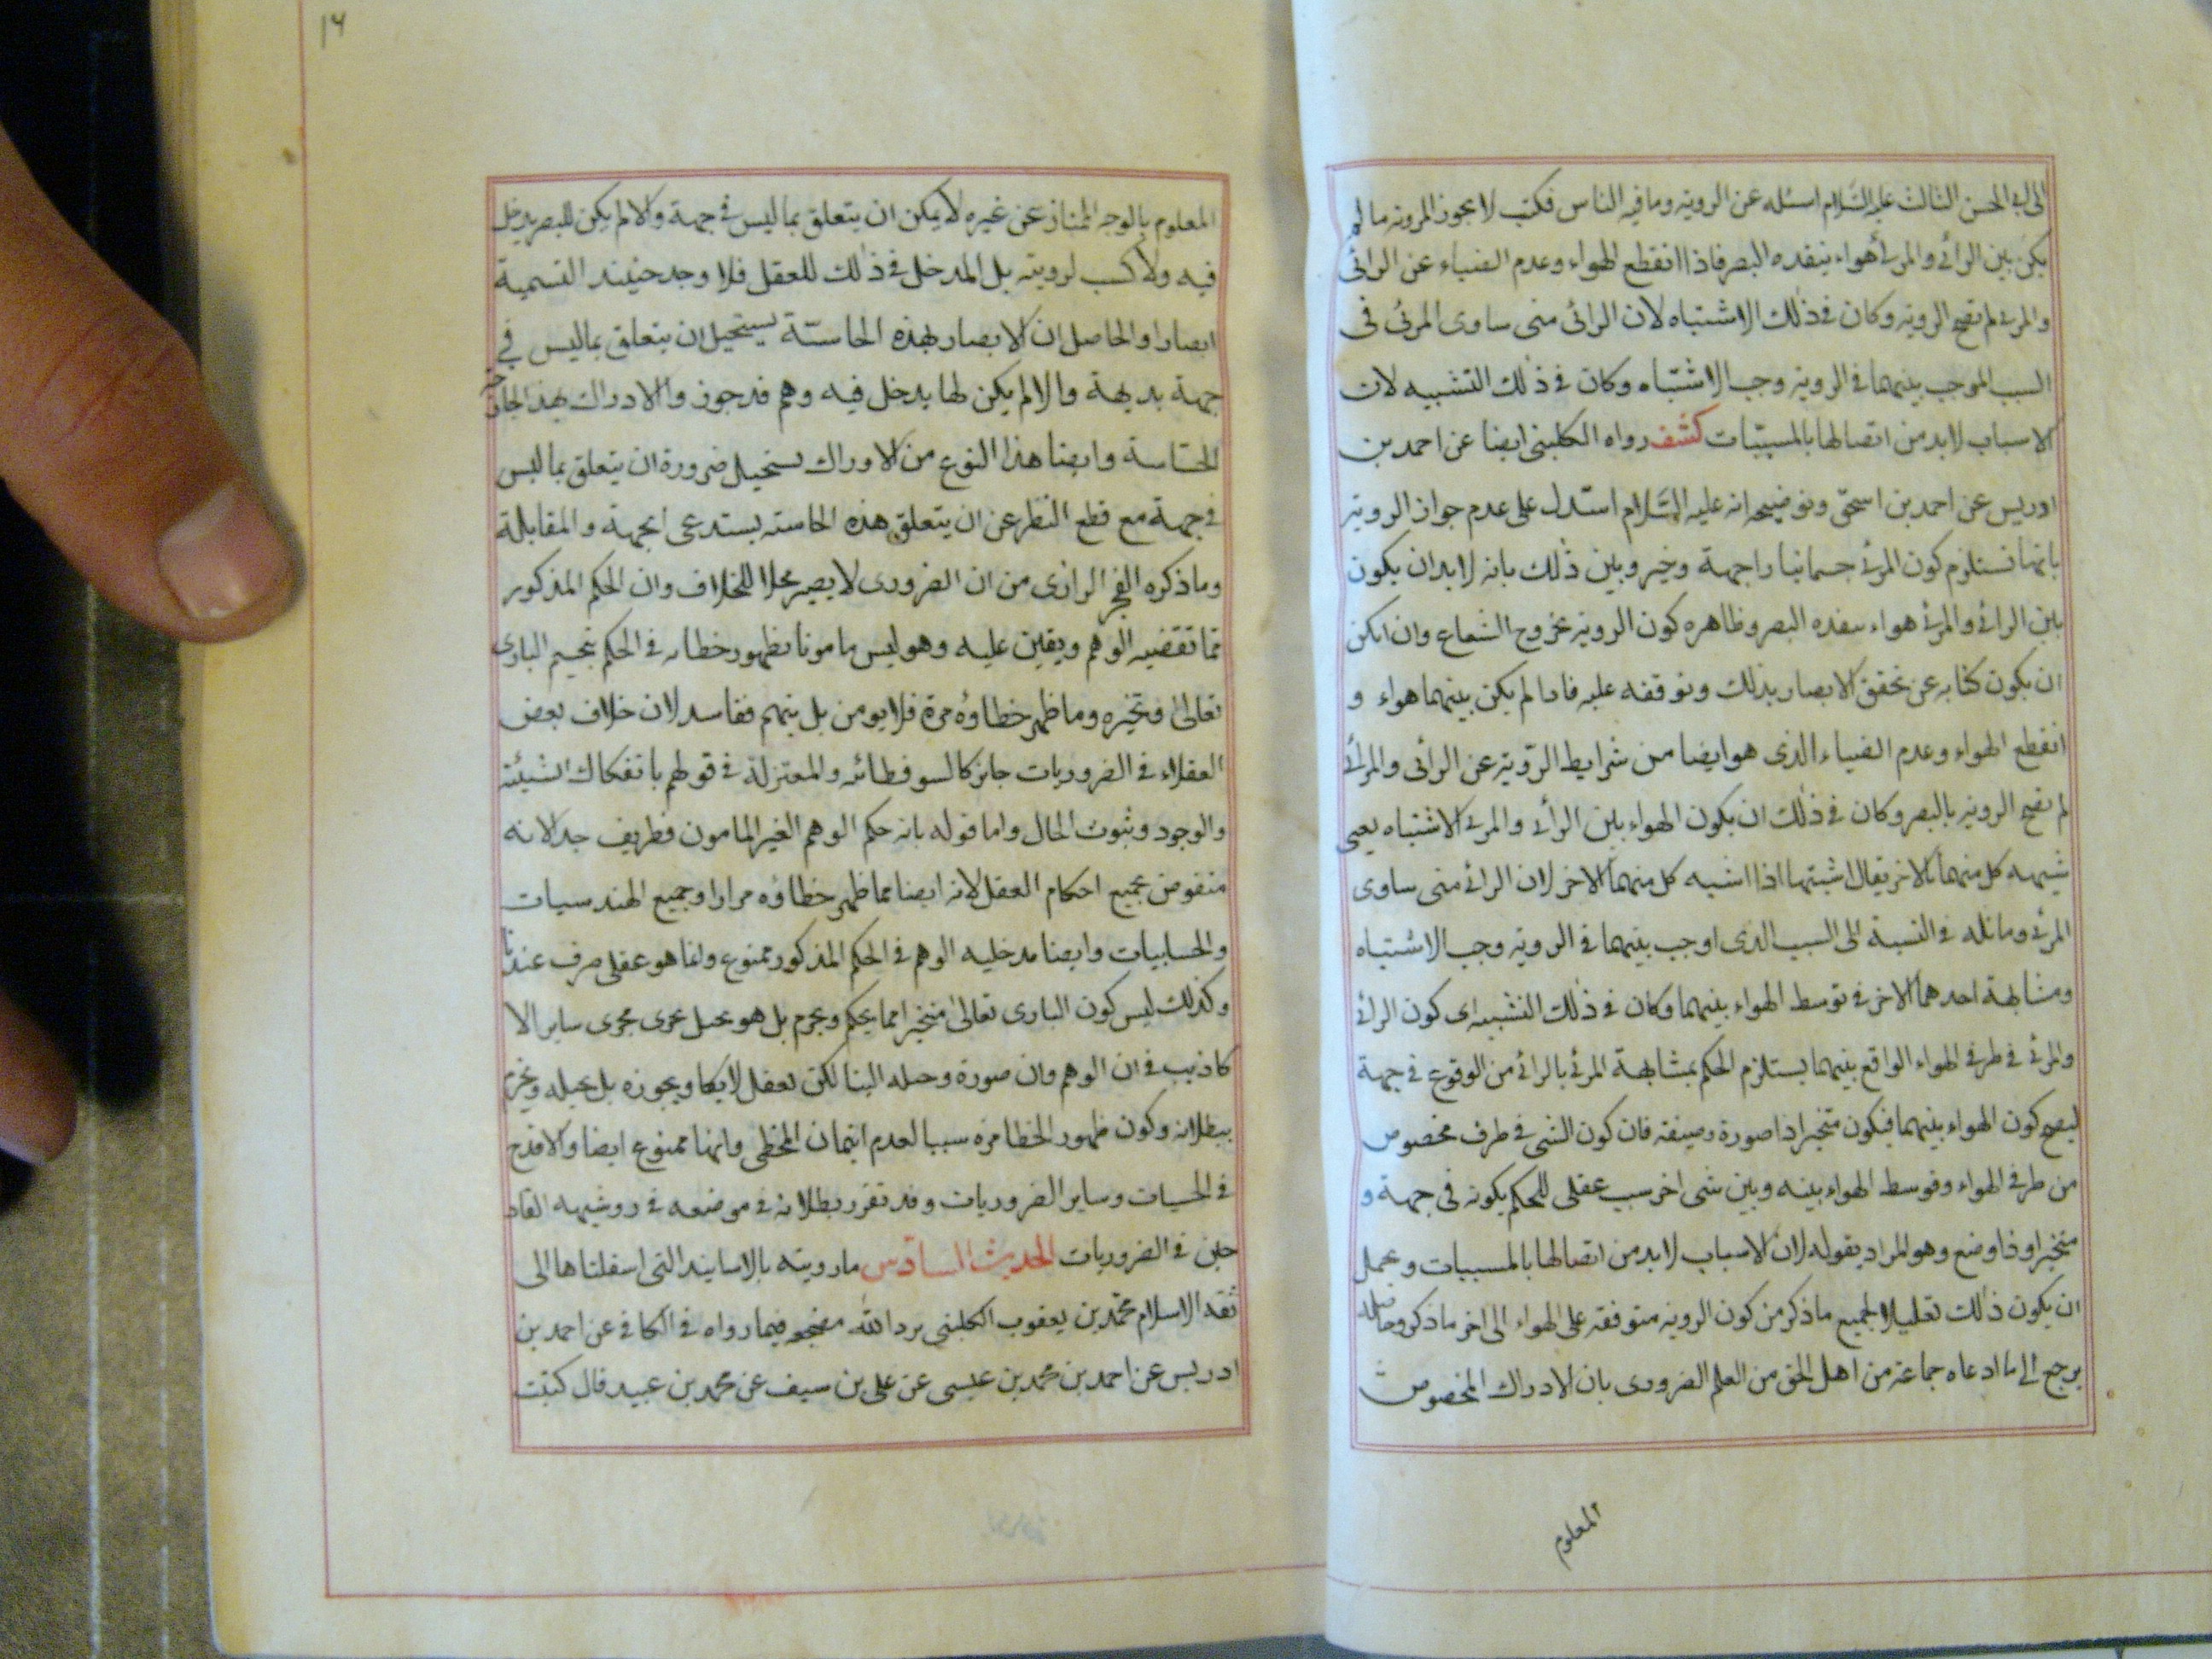 الى ابى الحسن الثالث عليه السلام اسئله عن الروية وما فيه الناس فكتب لا يجوز الروية ما لم
يكن بين الرائى والمرئى هواء ينفده البصر فاذا انقطع الهواء وعدم الضياء عن الرائى
والمرئى لم تصح الروية وكان فى ذلك الاشتباه لان الرائى متى ساوى المرئى فى
السبب الموجب بينهما فى الروية وجب الاشتباه وكان فى ذلك التشبيه لان
الاسباب لابد من اتصالها بالمسببات كشف رواه الكلينى ايضا عن احمد بن
ادريس عن احمد بن اسحق وتوضيحه انه عليه السلام استدل على عدم جواز الروية
بانها تستلزم كون المرئى جسمانيا ذا جهة وحيز وبين ذلك بانه لابد ان يكون
بين الرائى والمرئى هواء ينفده البصر وظاهره كون الروية بخروج الشعاع وان امكن
ان يكون كناية عن تحقق الابصار بذلك وتوقفه عليه فاذا لم يكن بينهما هواء و
انقطع الهواء وعدم الضياء الذى هو ايضا من شرايط الرؤية عن الرائى والمرئى
لم تصح الروية بالبصر وكان فى ذلك ان يكون الهواء بين الرائى والمرئى الاشتباه يعنى
شبهه كل منهما بالاخر يقال اشتبها اذا اشبه كل منهما الاخر لان الرائى متى ساوى
المرئى وماثله فى النسبة الى السبب الذى اوجب بينهما فى الروية وجب الاشتباه
ومشابهة احدهما الاخر فى توسط الهواء بينهما وكان فى ذلك التشبيه اى كون الرائى
والمرئى فى طرفى الهواء الواقع بينهما يستلزم الحكم بمشابهة المرئى بالرائى من الوقوع فى جهة
ليصح كون الهواء بينهما فيكون متحيزا ذا صورة وضيفه فان كون الشى فى طرف مخصوص
من طرفى الهواء وتوسط الهواء بينه وبين شى اخر سبب عقلى للحكم بكونه فى جهة و
متحيزا وذا وضع وهو المراد بقوله لان الاسباب لابد من اتصالها بالمسببات ويحمل
ان يكون ذلك تعليلا لجميع ما ذكر من كون الروية متوقفه على الهواء الى اخر ما ذكر وحاصله
يرجع الى ما ادعاه جماعة من اهل الحق من العلم الضرورى بان الادراك المخصوص
المعلوم
١٤
المعلوم بالوجه الممتاز عن غيره لا يمكن ان يتعلق بما ليس فى جهة والا لم يكن للبصر مدخل
فيه ولا كسب لرويته بل المدخل فى ذلك للعقل فلا وجه حينئذ التسمية
ابصارا والحاصل ان الابصار بهذه الحاسة يستحيل ان يتعلق بما ليس فى
جهة بديهة والا لم يكن لها مدخل فيه وهم قد جوزوا الادراك بهذا
الحاسة وايضا هذا النوع من الادراك يستحيل ضرورة ان يتعلق بما ليس
فى جهة مع قطع النظر عن ان يتعلق هذه الحاسة يستدعى الجهة والمقابلة
وما ذكره الفخر الرازى من ان الضرورى لا يصير محلا للخلاف وان الحكم المذكور
مما تقتضيه الوهم ويعين عليه وهو ليس مامونا لظهور خطائه فى الحكم بتجسيم البارى
تعالى وتحيزه وما ظهر خطاؤه مرة فلا يومن بل يتهم ففاسد لان خلاف بعض
العقلاء فى الضروريات جايز كالسوفسطائيه والمعتزلة فى قولهم بانفكاك الشيئية
والوجود وثبوت الحال واما قوله بانه حكم الوهم الغير المامون فطريف جدا لانه
منقوض بجميع احكام العقل لانه ايضا مما ظهر خطاؤه مرارا وجميع الهندسيات
والحسابيات وايضا مدخليه الوهم فى الحكم المذكور ممنوع وانما هو عقلى صرف عندنا
وكذلك ليس كون البارى تعالى متحيزا مما يحكم ويجزم بل هو يخيل يجرى مجرى ساير الا
كاذيب فى ان الوهم وان صوره وخيله الينا لكن العقل لا يكاد يجوزه بل يحيله ويجزم
ببطلانه وكون ظهور الخطا مرة سببا لعدم ايتمان المخطى واتهامه ممنوع ايضا والا قدح
فى الحسيات وساير الضروريات وقد تقرر بطلانه فى موضعه فى رد شبهه القاد
حين فى الضروريات الحديث السادس ما رويته بالاسانيد التى اسفلناها الى
ثقة الاسلام محمد بن يعقوب الكلينى برد الله مضجعه فيما رواه فى الكافى عن احمد بن
ادريس عن احمد بن محمد بن عيسى عن على بن سيف عن محمد بن عبيد قال كتبت